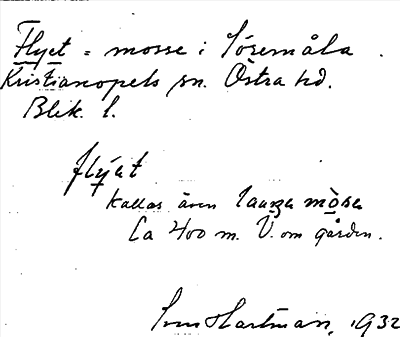 Flyet = mosse i Töremåla.
Kristianopels sn. Östra hd.
Blek. l.
flyət
kallas även laaŋa mosa
Ca 400 m. V. om gården.
Sven Hartman, 1932